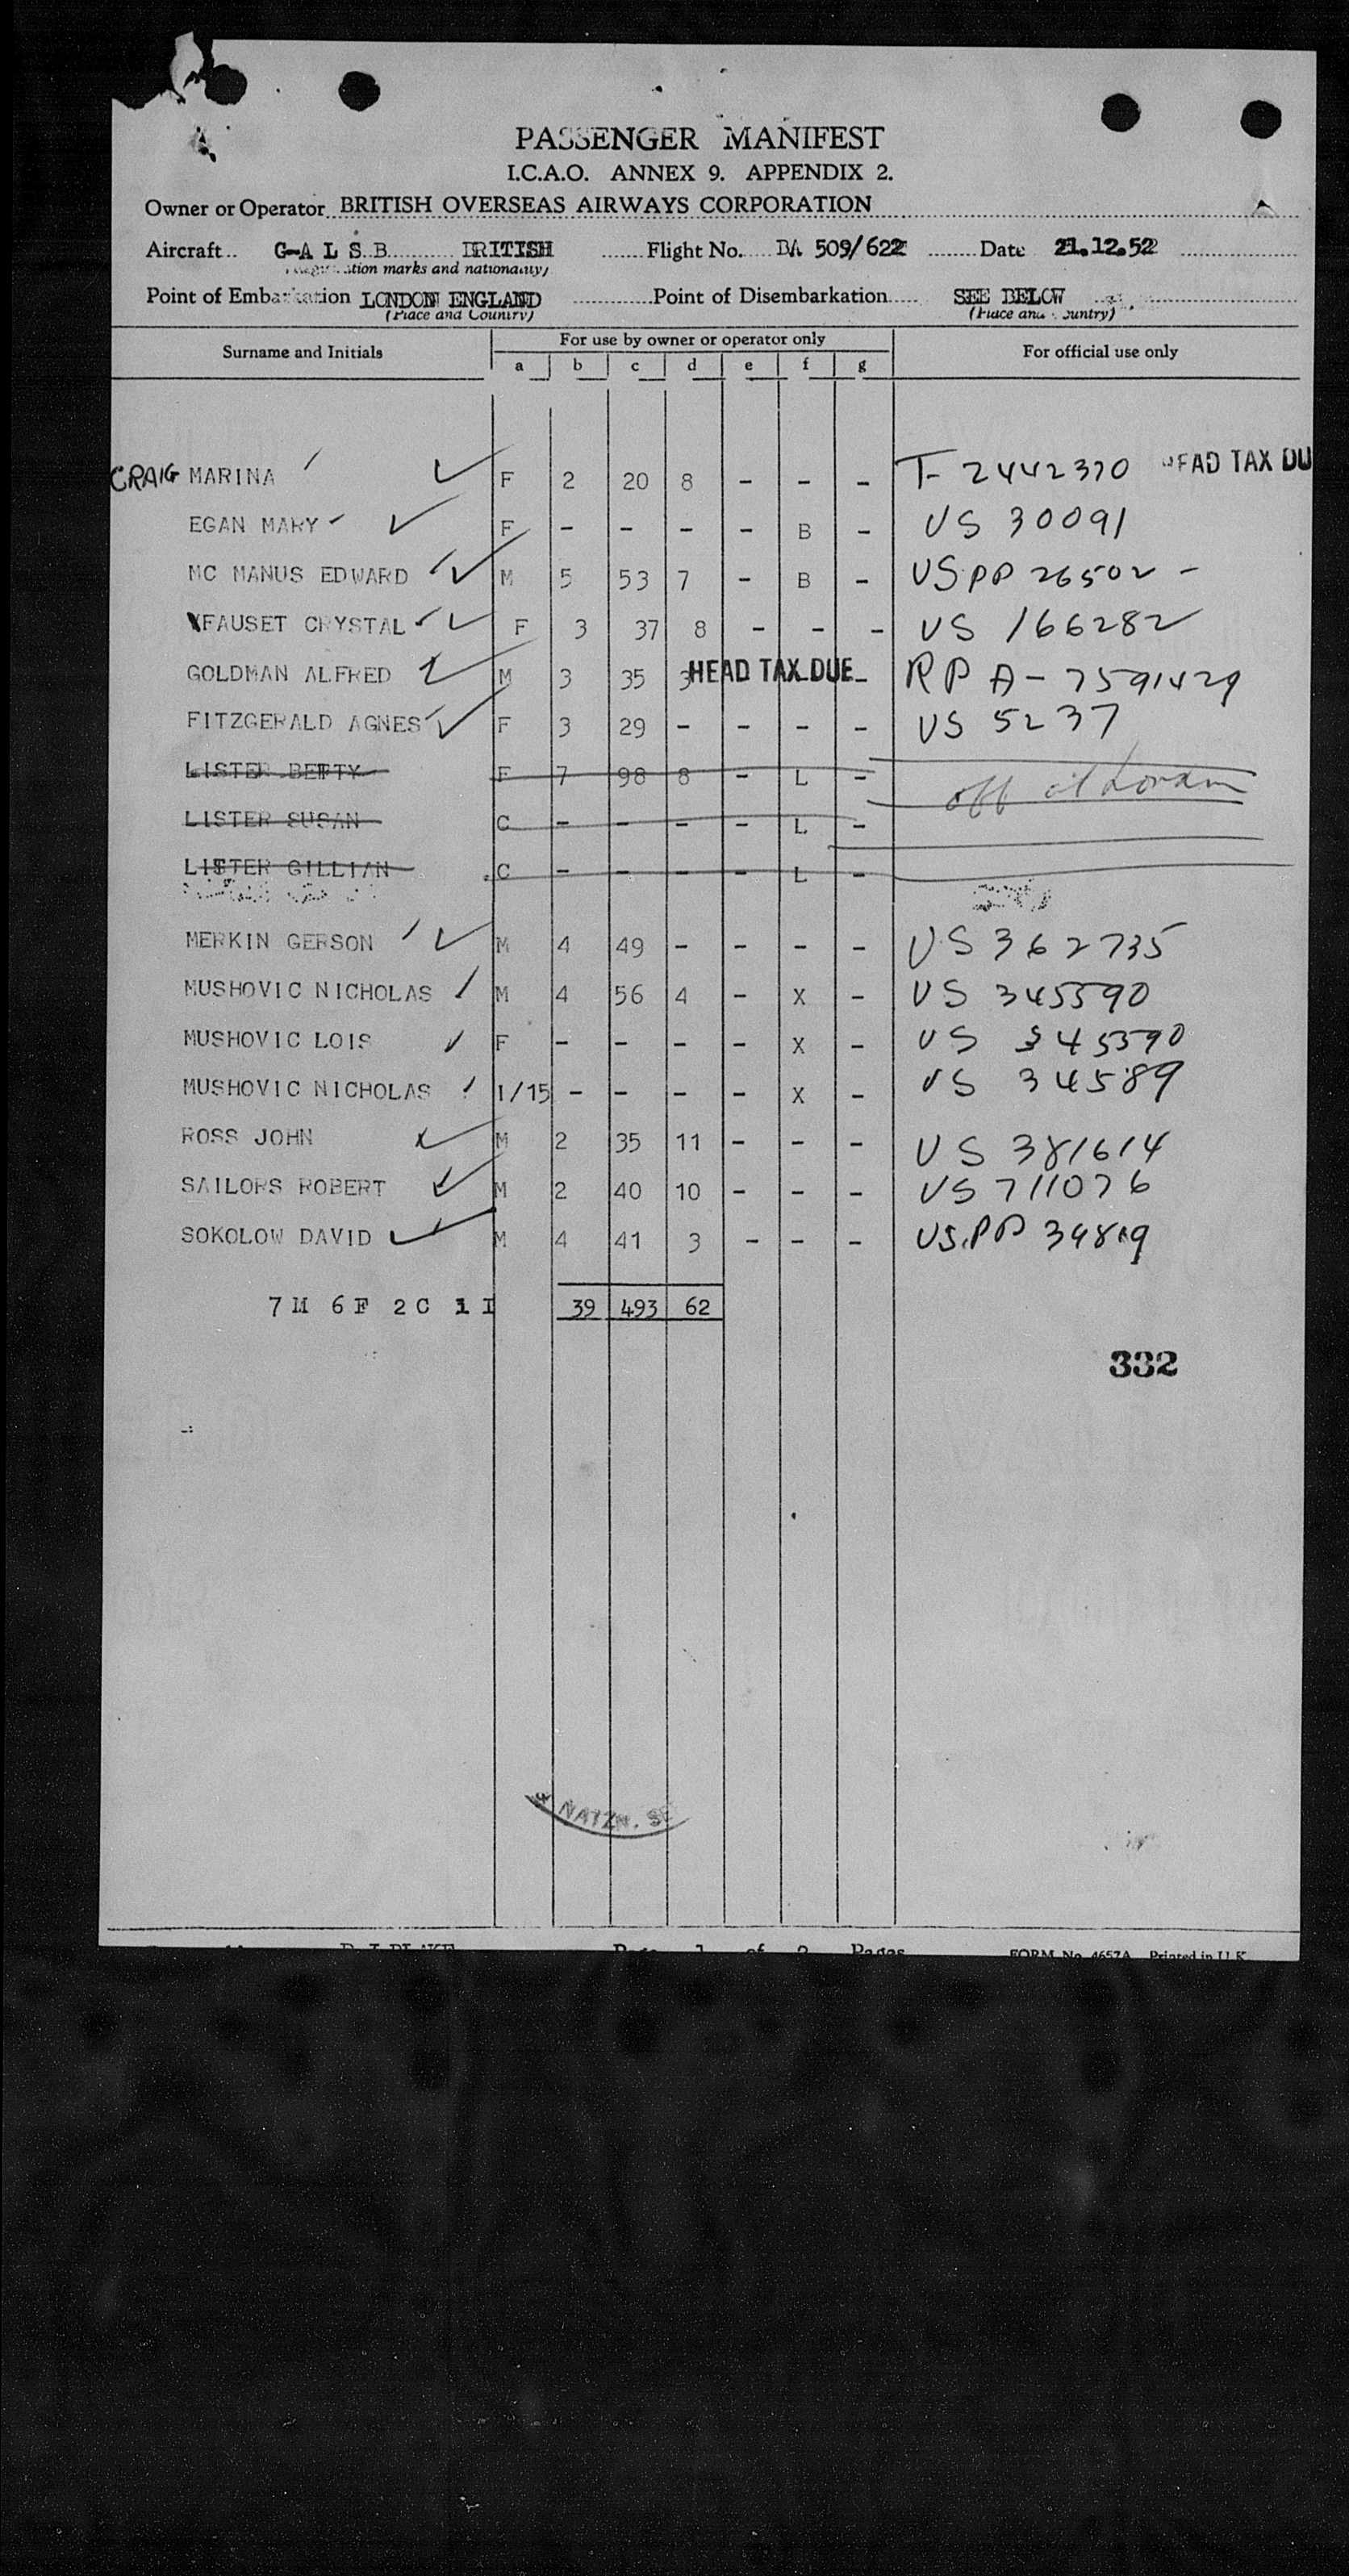 PASSENGER MANIFEST
I.C.A.O. ANNEX 9. APPENDIX 2.
Owner or Operator BRITISH OVERSEAS AIRWAYS CORPORATION
Aircraft G-A L S B BRITISH Flight No. BA 509/622 Date 21.12.52
marks and nationality)
Point of Embarkation LONDON ENGLAND Point of Disembarkation SEE BELOW
(Place and Country) (Place and Country)
Surname and Initials For use by owner or operator only For official use only
a b c d e f g
CRAIG MARINA F 2 20 8 - - - T- 2442370 HEAD TAX DU
EGAN MARY F - - - - B - US 30091
MC MANUS EDWARD M 5 53 7 - B - US PP 26502 -
FAUSET CRYSTAL F 3 37 8 - - - US 166282
GOLDMAN ALFRED M 3 35 3 HEAD TAX DUE - RP A- 7591429
FITZGERALD AGNES F 3 29 - - - - US 5237
LISTER BETTY F 7 98 8 - L - off at London
LISTER SUSAN C - - - - L -
LISTER GILLIAN C - - - - L -
MERKIN GERSON M 4 49 - - - - US 362735
MUSHOVIC NICHOLAS M 4 56 4 - X - US 345590
MUSHOVIC LOIS F - - - - X - US 345590
MUSHOVIC NICHOLAS I/15 - - - - X - US 34589
ROSS JOHN M 2 35 11 - - - US 381614
SAILORS ROBERT M 2 40 10 - - - US 711076
SOKOLOW DAVID M 4 41 3 - - - US.PP 39819
7 M 6 F 2 C 1 I 39 493 62
332
NATZN. SE
Page 1 of 2 Pages FORM No. 4657A Printed in U.K.